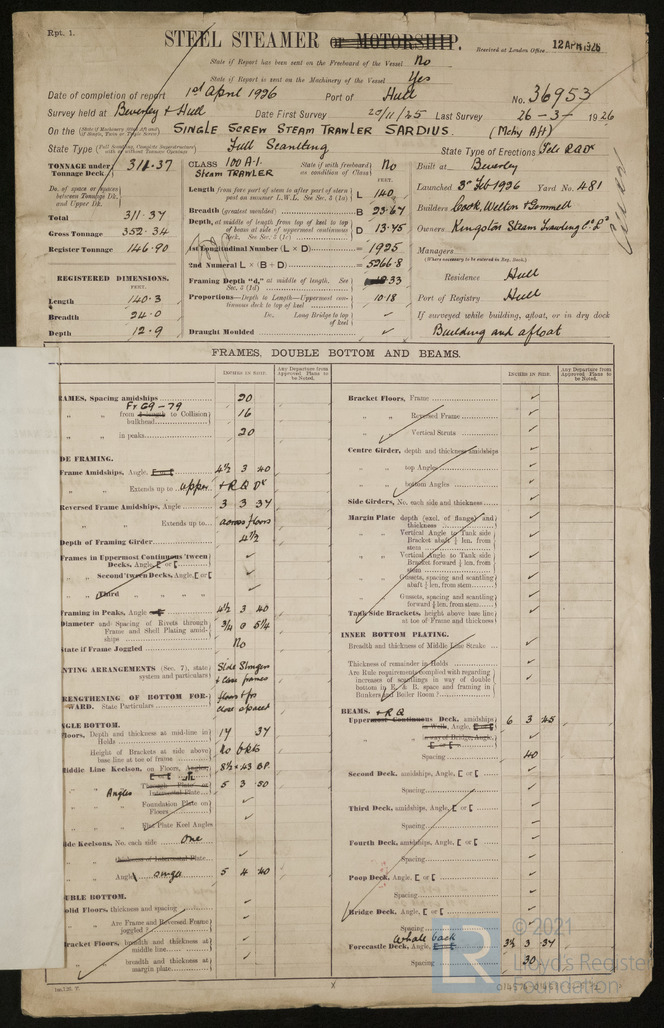 Rpt. 1.
STEEL STEAMER or MOTORSHIP.
Received at London Office 12 APR 1926
State if Report has been sent on the Freeboard of the Vessel No
State if Report is sent on the Machinery of the Vessel Yes
Date of completion of report 1st April 1926 Port of Hull No. 36953
Survey held at Beverley & Hull Date First Survey 20/11/25 Last Survey 26-3-1926
On the SINGLE SCREW STEAM TRAWLER SARDIUS. (Mchy Aft)
State Type Full Scantling State Type of Erections Fcle R Q Dk
TONNAGE under Tonnage Deck 311.37
Do. of space or spaces between Tonnage Dk. and Upper Dk.
Total 311.37
Gross Tonnage 352.34
Register Tonnage 146.90
REGISTERED DIMENSIONS.
FEET.
Length 140.3
Breadth 24.0
Depth 12.9
CLASS 100 A.1. Steam TRAWLER State if with freeboard as condition of Class No
Length from fore part of stem to after part of stern post on summer L.W.L. See Sec. 3 (1a) L 140
Breadth (greatest moulded) B 23.67
Depth, at middle of length from top of keel to top of beam at side of uppermost continuous deck. See Sec. 3 (1c) D 13.45
1st Longitudinal Number (L × D) = 1925
2nd Numeral L × (B + D) = 5266.8
Framing Depth "d," at middle of length. See Sec. 3 (1d) 33
Proportions—Depth to Length—Uppermost continuous deck to top of keel 10.18
Do. Long Bridge to top of keel ✓
Draught Moulded ✓
Built at Beverley
Launched 3rd Feb 1926 Yard No. 481
Builders Cook, Welton & Gemmell
Owners Kingston Steam Trawling Co Ld
Managers
(Where necessary to be entered in Reg. Book.)
Residence Hull
Port of Registry Hull
If surveyed while building, afloat, or in dry dock
Building and afloat
FRAMES, DOUBLE BOTTOM AND BEAMS.
INCHES IN SHIP. Any Departure from Approved Plans to be Noted.
INCHES IN SHIP. Any Departure from Approved Plans to be Noted.
RAMES, Spacing amidships 20
Fr 69-79
" " from to Collision bulkhead 16
" " in peaks 20
DE FRAMING.
Frame Amidships, Angle, 4½ 3 .40
" " Extends up to upper + R Q Dk
Reversed Frame Amidships, Angle 3 3 .37
" " Extends up to across floors
Depth of Framing Girder 4½
Frames in Uppermost Continuous 'tween Decks, Angle, [ or [ ✓
" " Second 'tween Decks, Angle, [ or [ ✓
" " Third " " " " ✓
Framing in Peaks, Angle 4½ 3 .40
Diameter and Spacing of Rivets through Frame and Shell Plating amidships 3/4 @ 5¼
State if Frame Joggled No
NTING ARRANGEMENTS (Sec. 7), state system and particulars Side Stringers & Close frames
RENGTHENING OF BOTTOM FORWARD. State Particulars floors & frs close spaced
NGLE BOTTOM.
loors, Depth and thickness at mid-line in Holds 17 .37
Height of Brackets at side above base line at toe of frame No bkts
iddle Line Keelson, on Floors, Angles, 8½ × .43 BP.
" " Through Plate or Intercostal Plate
Angles 5 3 .50
" " Foundation Plate on Floors ✓
" " Flat Plate Keel Angles ✓
ide Keelsons, No. each side one
" " thickness of Intercostal Plate ✓
" " Angle 5 4 .40
UBLE BOTTOM.
olid Floors, thickness and spacing ✓
" " Are Frame and Reversed Frame joggled? ✓
racket Floors, breadth and thickness at middle line ✓
" " breadth and thickness at margin plate ✓
Bracket Floors, Frame ✓
" " Reversed Frame ✓
" " Vertical Struts ✓
Centre Girder, depth and thickness amidships ✓
" " top Angles ✓
" " bottom Angles ✓
Side Girders, No. each side and thickness ✓
Margin Plate depth (excl. of flange) and thickness ✓
" " Vertical Angle to Tank side Bracket abaft ¼ len. from stem ✓
" " Vertical Angle to Tank side Bracket forward ¼ len. from stem ✓
" " Gussets, spacing and scantling abaft ¼ len. from stem ✓
" " Gussets, spacing and scantling forward ¼ len. from stem ✓
Tank Side Brackets, height above base line at toe of Frame and thickness ✓
INNER BOTTOM PLATING.
Breadth and thickness of Middle Line Strake ✓
Thickness of remainder in Holds ✓
Are Rule requirements complied with regarding increases of scantlings in way of double bottom in E. & B. space and framing in Bunkers and Boiler Room? ✓
BEAMS. + R Q
Uppermost Continuous Deck, amidships in Wells, Angle, [ or [ 6 3 .45
" " in way of Bridge, Angle, [ or [
Spacing 40
Second Deck, amidships, Angle, [ or [ ✓
Spacing ✓
Third Deck, amidships, Angle, [ or [ ✓
Spacing ✓
Fourth Deck, amidships, Angle, [ or [ ✓
Spacing ✓
Poop Deck, Angle, [ or [ ✓
Spacing ✓
Bridge Deck, Angle, [ or [ ✓
Spacing ✓
Whale back
Forecastle Deck, Angle, [ or [ 3½ 3 .37
Spacing 30
LR © 2021
Lloyd's Register
Foundation